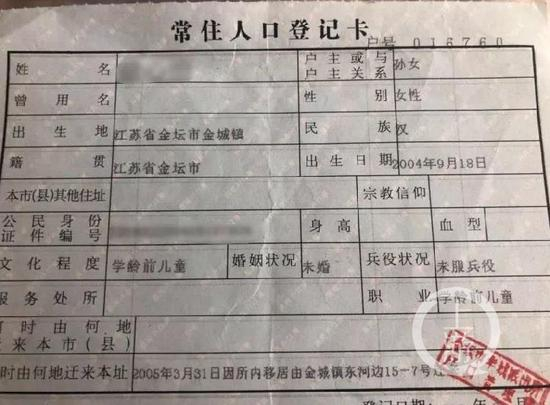 常住人口登记卡
户号 016760
姓名
户主或与户主关系 孙女
曾用名
性别 女性
出生地 江苏省金坛市金城镇
民族 汉
籍贯 江苏省金坛市
出生日期 2004年9月18日
本市(县)其他住址
宗教信仰
公民身份证件编号
身高
血型
文化程度 学龄前儿童
婚姻状况 未婚
兵役状况 未服兵役
服务处所
职业 学龄前儿童
时由何地
来本市(县)
时由何地迁来本址 2005年3月31日因所内移居由金城镇东河边15-7号迁